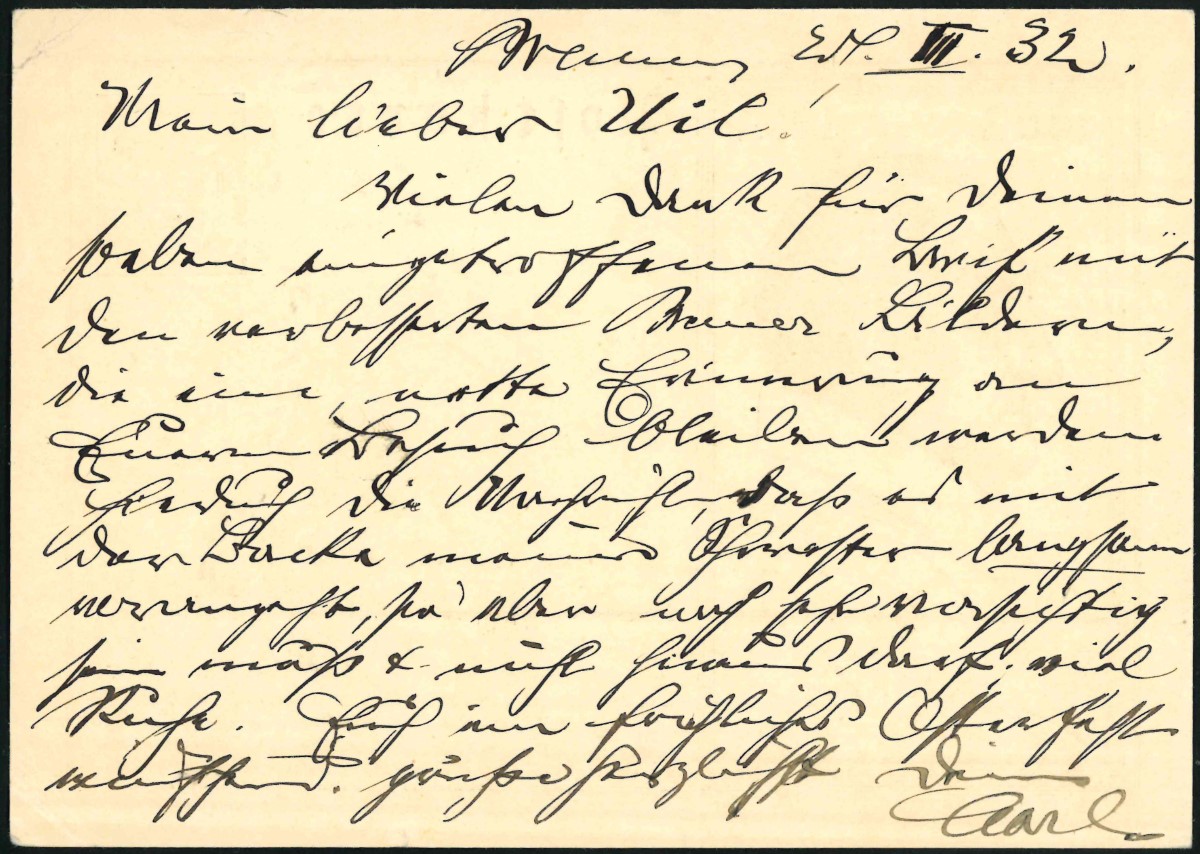 Bremen, 24. III. 32.
Mein lieber Uil!
Vielen Dank für Deinen
soeben eingetroffenen Brief mit
den verbesserten Bremer Bildern,
die eine nette Erinnerung an
Eueren Besuch bleiben werden
die Nachricht, dass es mit
der Backe meiner Schwester langsam
vorangeht, sie aber noch sehr vorsichtig
sein muß & nicht hinaus darf. viel
Ruhe. Euch ein fröhliches Osterfest
wünschend. grüße herzlichst Dein
Carl.